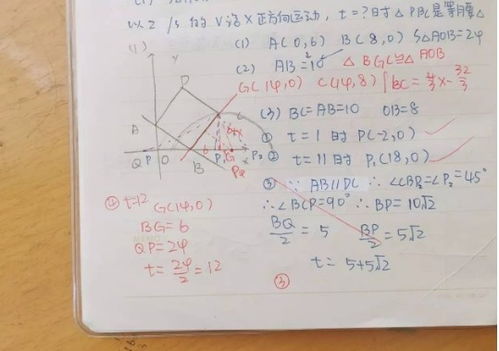 以2 /s 的V沿X正方向运动，t=?时△PBC是等腰△
(1) A(0,6) B(8,0) S△AOB=24
(2) AB=10 △BGC≌△AOB
G(14,0) C(14,8) lBC=4/3x-32/3
(3) BC=AB=10 OB=8
① t=1时 P(-2,0)
② t=11时 P₁(18,0)
③ ∵ AB∥DC ∴∠CBP₂=∠P₂=45°
∴∠BCP=90° ∴BP=10√2
BQ/2=5 BP/2=5√2
t=5+5√2
③
④ t=12
G(14,0)
BG=6
QP=24
t=24/2=12
(1)
y
D
A
C
Q P O B P₁ G P₂
6